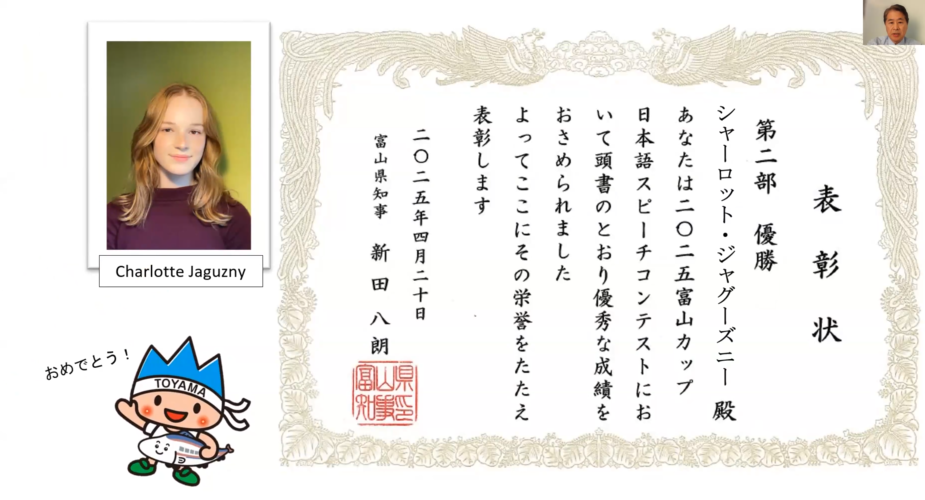 Charlotte Jaguzny
おめでとう！
TOYAMA
表彰状
第二部　優勝
シャーロット・ジャグーズニー　殿
あなたは二〇二五富山カップ
日本語スピーチコンテストにお
いて頭書のとおり優秀な成績を
おさめられました
よってここにその栄誉をたたえ
表彰します
二〇二五年四月二十日
富山県知事　新田八朗
富山県知事印